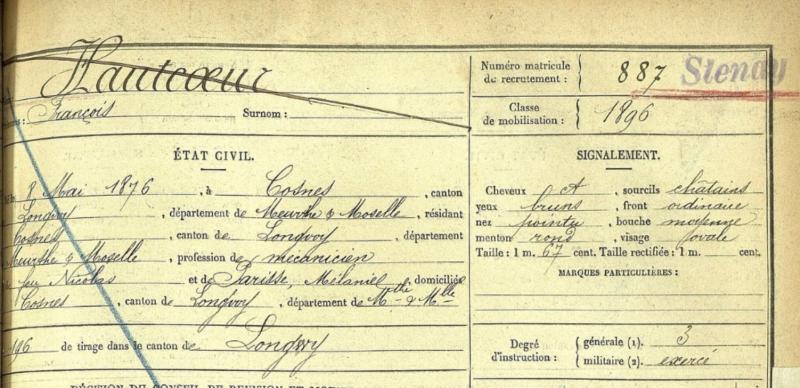 Hautcœur
Numéro matricule
de recrutement : 887 Stenay
François Surnom :
Classe
de mobilisation : 1896
ÉTAT CIVIL.
8 Mai 1876, à Cosnes, canton
Longwy, département de Meurthe & Moselle, résidant
Cosnes, canton de Longwy, département
Meurthe & Moselle, profession de mécanicien
feu Nicolas et de Parisse, Mélanie, domiciliés
Cosnes, canton de Longwy, département de Mthe & Mlle
de tirage dans le canton de Longwy
SIGNALEMENT.
Cheveux et, sourcils châtains
yeux bruns, front ordinaire
nez pointu, bouche moyenne
menton rond, visage ovale
Taille : 1 m. 67 cent. Taille rectifiée : 1 m. cent.
MARQUES PARTICULIÈRES :
Degré
d'instruction : générale (1). 3
militaire (2). exercé
DÉCISION DU CONSEIL DE REVISION ET